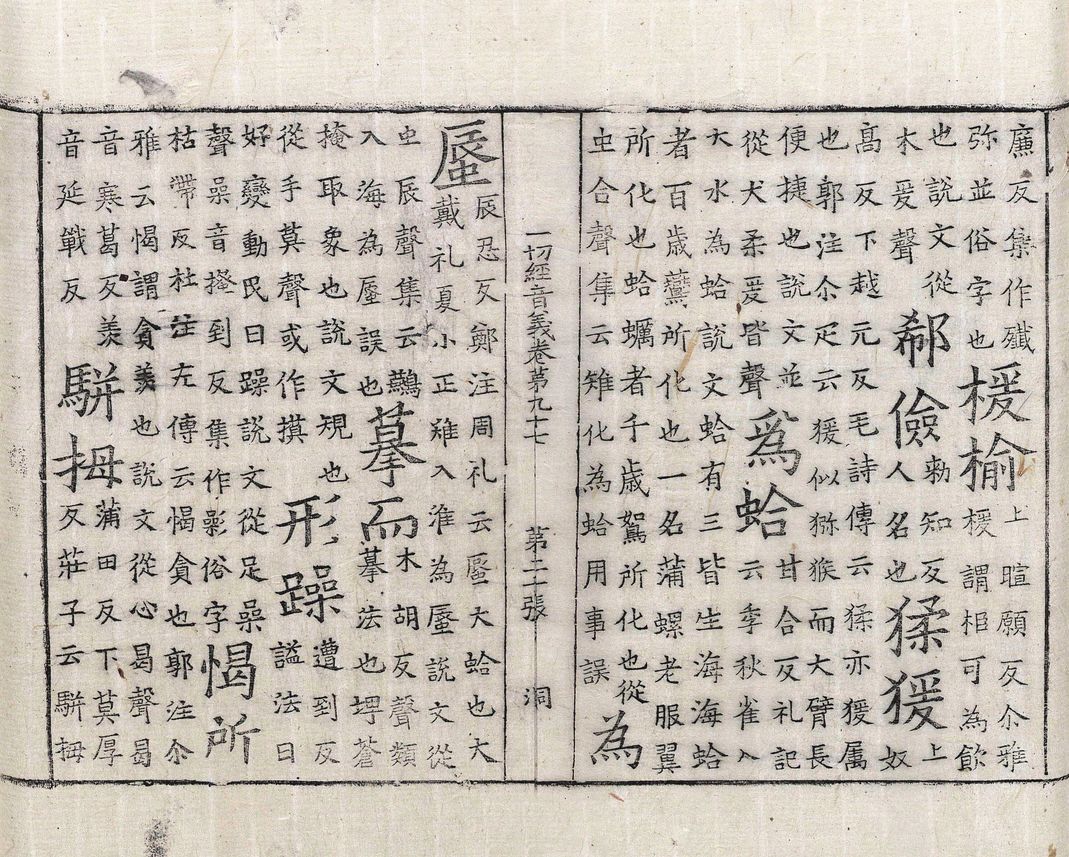 廉反集作殲
弥並俗字也
楥榆
上暄願反尒雅
楥謂柜可為飲
也說文從
木爰聲
郗儉
勑知反
人名也
猱猨
上
奴
高反下越元反毛詩傳云猱亦猨属
也郭注尒疋云猨似猕猴而大臂長
便捷也說文並
從犬柔爰皆聲
爲蛤
甘合反礼記
云季秋雀入
大水為蛤說文蛤有三皆生海海蛤
者百歲鷰所化也一名蒲螺老服翼
所化也蛤蠣者千歲鴽所化也從
虫合聲集云雉化為蛤用事誤
為
一切經音義卷第九十七 第二十張 洞
蜃
辰忍反鄭注周礼云蜃大蛤也大
戴礼夏小正雉入淮為蜃說文從
虫辰聲集云
入海為蜃誤也
摹而
木胡反聲類
摹法也埤蒼
掩取象也說文規也
從手莫聲或作摸
形躁
遭到反
謚法曰
好變動民曰躁說文從足喿
聲喿音搔到反集作俗字
愒所
枯帶反杜注左傳云愒貪也郭注尒
雅云愒謂貪羨也說文從心曷聲曷
音寒葛反羨
音延戰反
駢拇
蒲田反下莫厚
反莊子云駢拇